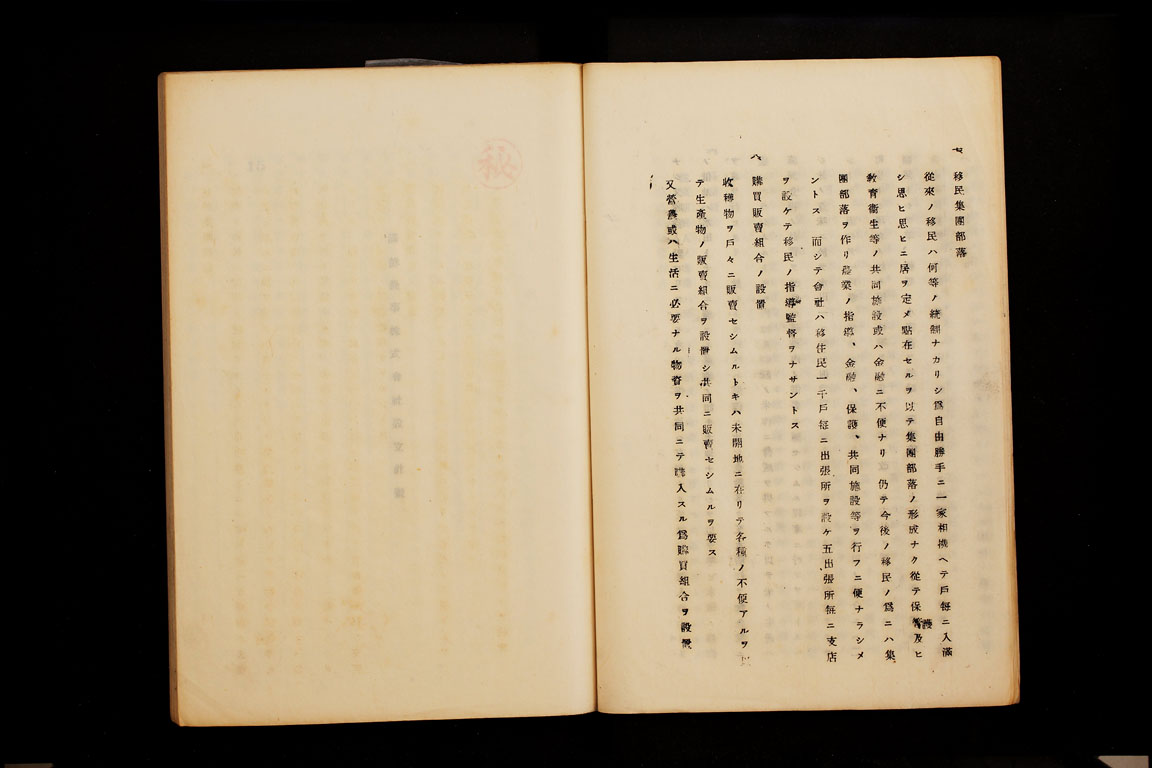 七、移民集團部落
從來ノ移民ハ何等ノ統制ナカリシ爲自由勝手ニ一家相携ヘテ戶每ニ入滿
シ思ヒ思ヒニ居ヲ定メ點在セルヲ以テ集團部落ノ形成ナク從テ保護及ヒ
教育衞生等ノ共同施設或ハ金融ニ不便ナリ仍テ今後ノ移民ノ爲ニハ集
團部落ヲ作リ農業ノ指導、金融、保護、共同施設等ヲ行フニ便ナラシメ
ントス 而シテ會社ハ移住民一千戶每ニ出張所ヲ設ケ五出張所每ニ支店
ヲ設ケテ移民ノ指導監督ヲナサントス
八、購買販賣組合ノ設置
收穫物ヲ戶々ニ販賣セシムルトキハ未開地ニ在リテ各種ノ不便アルヲ以
テ生產物ノ販賣組合ヲ設置シ共同ニ販賣セシムルヲ要ス
又營農或ハ生活ニ必要ナル物資ヲ共同ニテ購入スル爲購買組合ヲ設置
秘